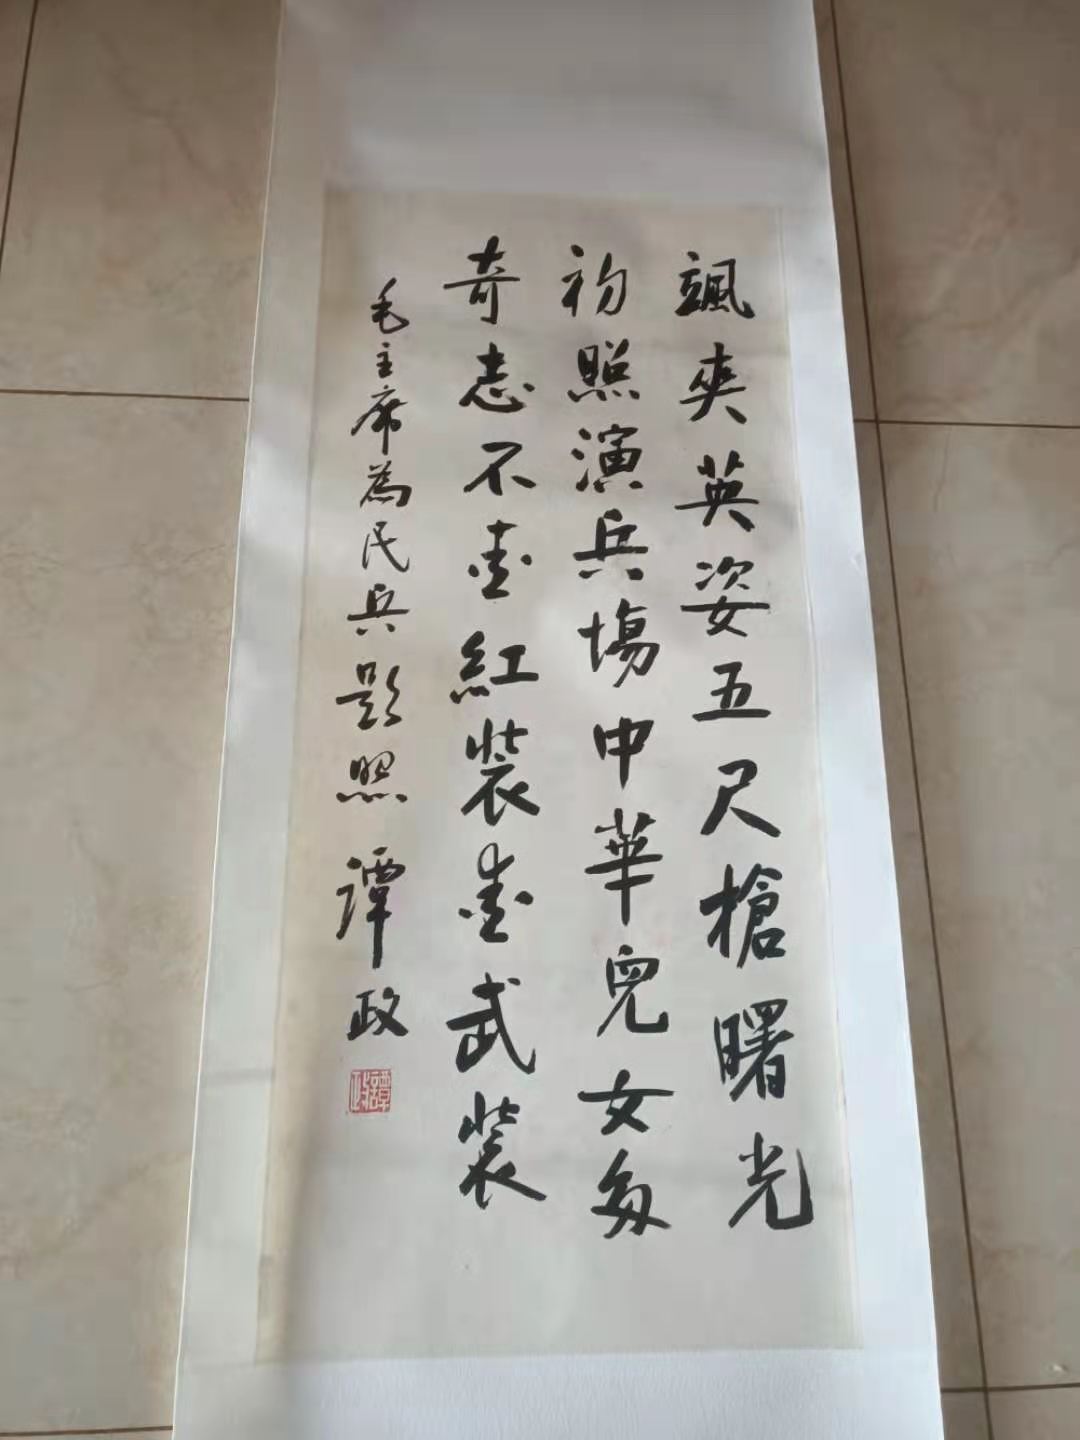 颯爽英姿五尺槍曙光
初照演兵場中華兒女多
奇志不愛紅裝愛武裝
毛主席為民兵題照 譚政
譚政